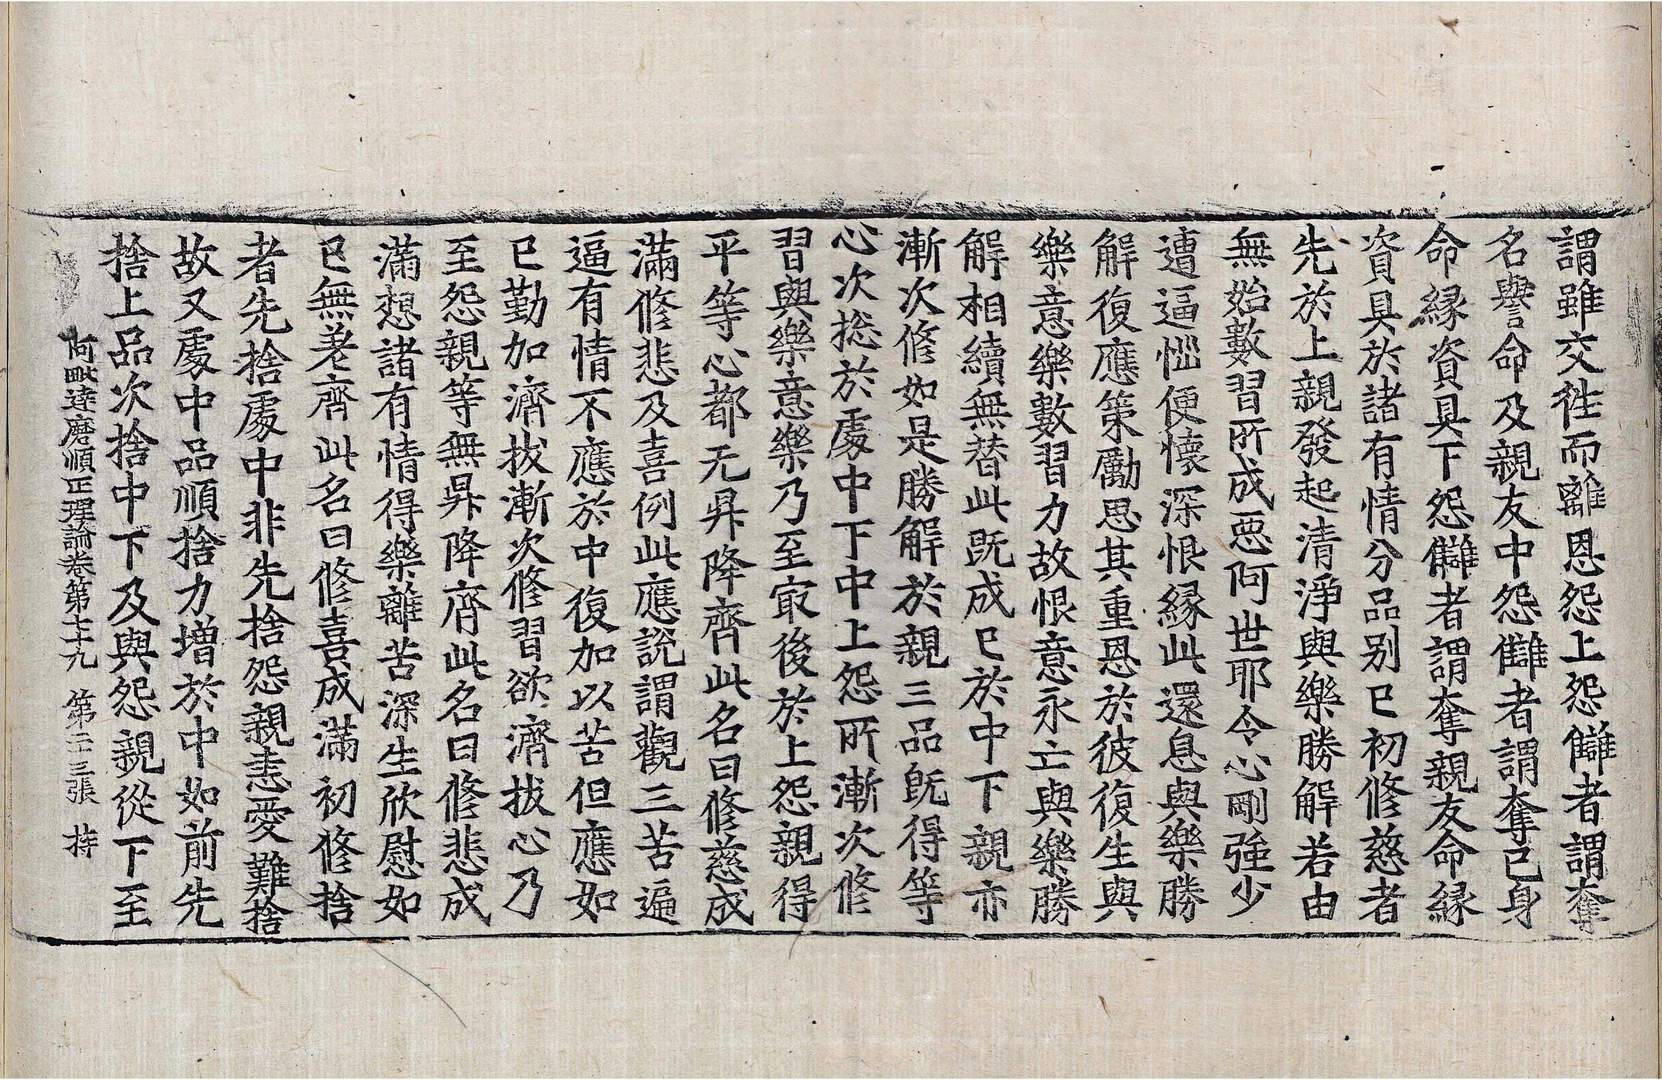 謂雖交往而離恩怨上怨讎者謂奪
名譽命及親友中怨讎者謂奪己身
命縁資具下怨讎者謂奪親友命縁
資具於諸有情分品别已初修慈者
先於上親發起清淨與樂勝解若由
無始數習所成惡阿世耶令心剛強少
遭逼惱便懷深恨縁此還息與樂勝
解復應策勵思其重恩於彼復生與
樂意樂數習力故恨意永亡與樂勝
解相續無替此既成已於中下親亦
漸次修如是勝解於親三品既得等
心次捴於處中下中上怨所漸次修
習與樂意樂乃至㝡後於上怨親得
平等心都无昇降齊此名曰修慈成
滿修悲及喜例此應說謂觀三苦遍
逼有情不應於中復加以苦但應如
已勤加濟拔漸次修習欲濟拔心乃
至怨親等無昇降齊此名曰修悲成
滿想諸有情得樂離苦深生欣慰如
已無差齊此名曰修喜成滿初修捨
者先捨處中非先捨怨親恚愛難捨
故又處中品順捨力增於中如前先
捨上品次捨中下及與怨親從下至
阿毗達磨順正理論卷第七十九 第二十三張 持